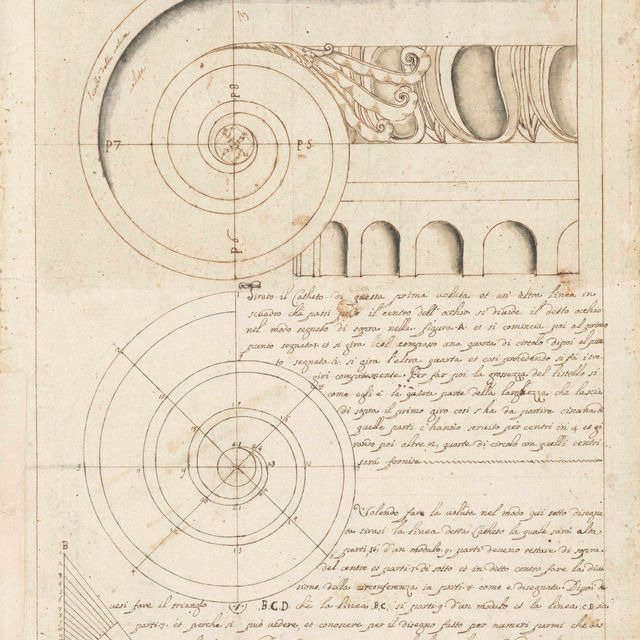 3
P 8
P 7
P 5
P 6
Tirato il Catheto di questa prima voluta et un' altra linea in
squadro chà passi per il centro dell' occhio si divide il detto occhio
nel modo segnato di sopra nella figura A et si comincia poi al primo
punto segnato 1. et si gira col compasso una quarta di circolo dipoi al pun
to segnato 2. si gira l'altra quarta et cosi procedendo si fa i tre
giri compitamente. Per far poi la grossezza del listello si
come egli è la quarta parte della larghezza che lascia
di sopra il primo giro così s'ha da partire ciascheduna di
quelle parti c'hanno servito per centri in 4 et gi
rando poi altre 12 quarte di circolo con quelli centri
sarà fornito
Volendo fare la voluta nel modo qui sotto disegna
ta tirasi la linea detta Catheto la quale sarà alta
parti 16 d'un modulo 9. parti deveno restare di sopra
del centro et parti 7. di sotto et in detto centro fare la divi
sione della circonferenza in parti 8 come è disegnata. Dipoi de
vesi fare il triangolo B.C.D che la linea B.C. si parti 9. d'un modulo et la linea C.D. sia
parti 7. et perche si può vedere, et conoscere per il disegno fatto per numeri parmi che bas
B